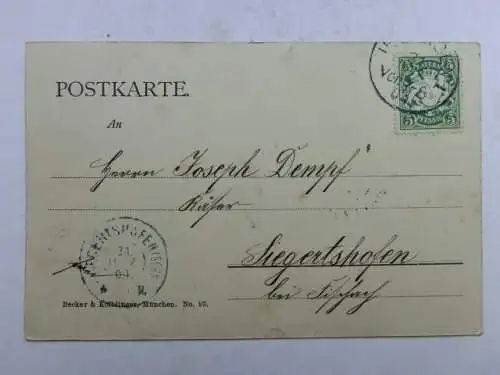 POSTKARTE.
An
Herrn Joseph Dempf
Käser
Siegertshofen
bei Fischach
5 5
31
04
Becker & Kölblinger, München. No. 95.